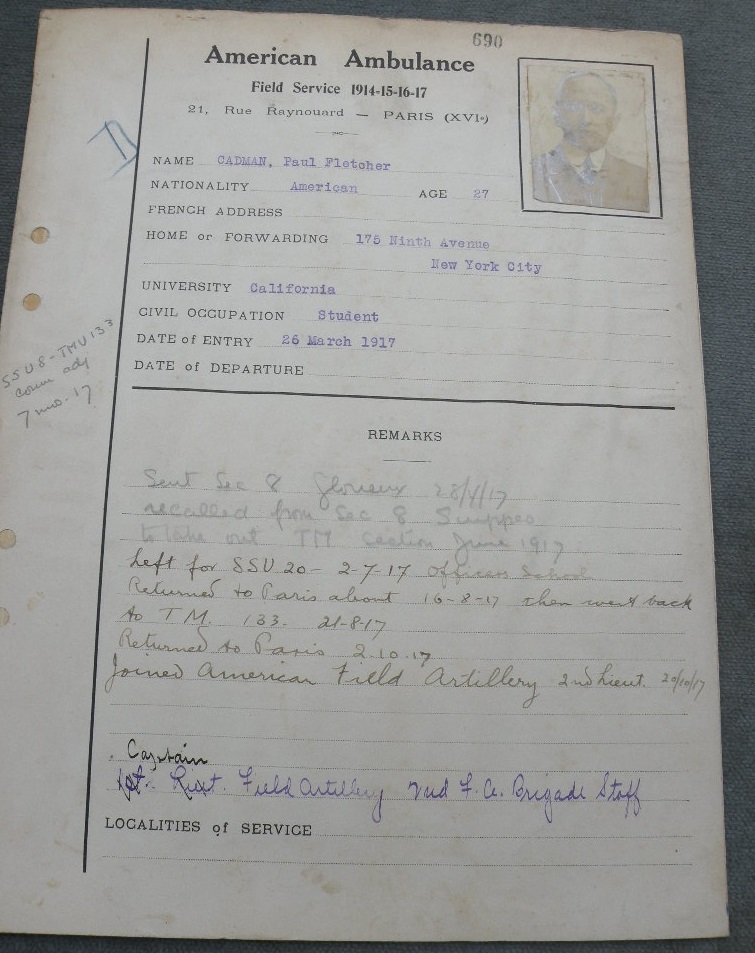 690
American Ambulance
Field Service 1914-15-16-17
21, Rue Raynouard — PARIS (XVIe)
NAME CADMAN, Paul Fletcher
NATIONALITY American AGE 27
FRENCH ADDRESS
HOME or FORWARDING 175 Ninth Avenue
New York City
UNIVERSITY California
CIVIL OCCUPATION Student
DATE of ENTRY 26 March 1917
DATE of DEPARTURE
SSU 8 - TMU 133
comm adj
7 mo. 17
REMARKS
Sent Sec 8 28/4/17
recalled from Sec 8 Suippes
to take out TM section June 1917
Left for SSU 20 - 2-7-17 Officers School
Returned to Paris about 16-8-17 then went back
to T.M. 133. 21-8-17
Returned to Paris 2.10.17
Joined American Field Artillery 2nd Lieut. 20/10/17
Captain
Field Artillery 2nd F.A. Brigade Staff
LOCALITIES of SERVICE